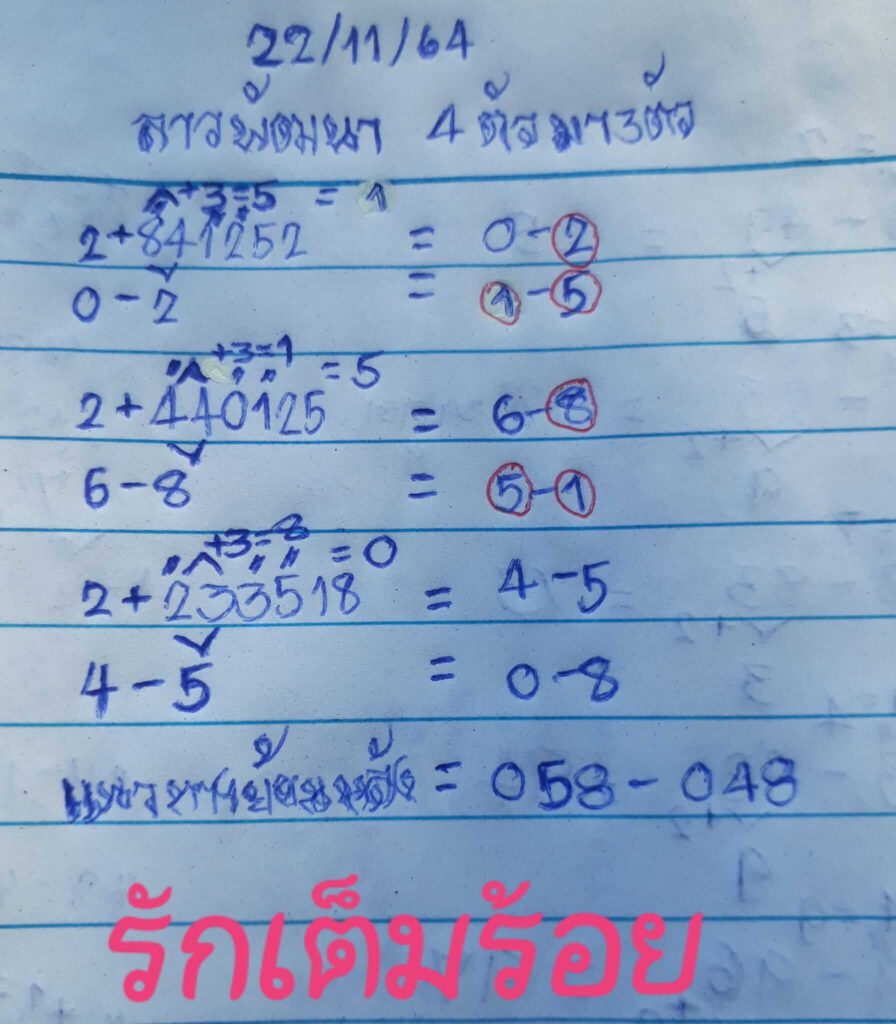 22/11/64
ลาวพัฒนา 4 ตัวมา 3 ตัว
+3=5 = 1
2+841252 = 0-2
0-2 = 1-5
+3=1 = 5
2+440125 = 6-8
6-8 = 5-1
+3=8 = 0
2+233518 = 4-5
4-5 = 0-8
แนวทางย้อนหลัง = 058-048
รักเต็มร้อย